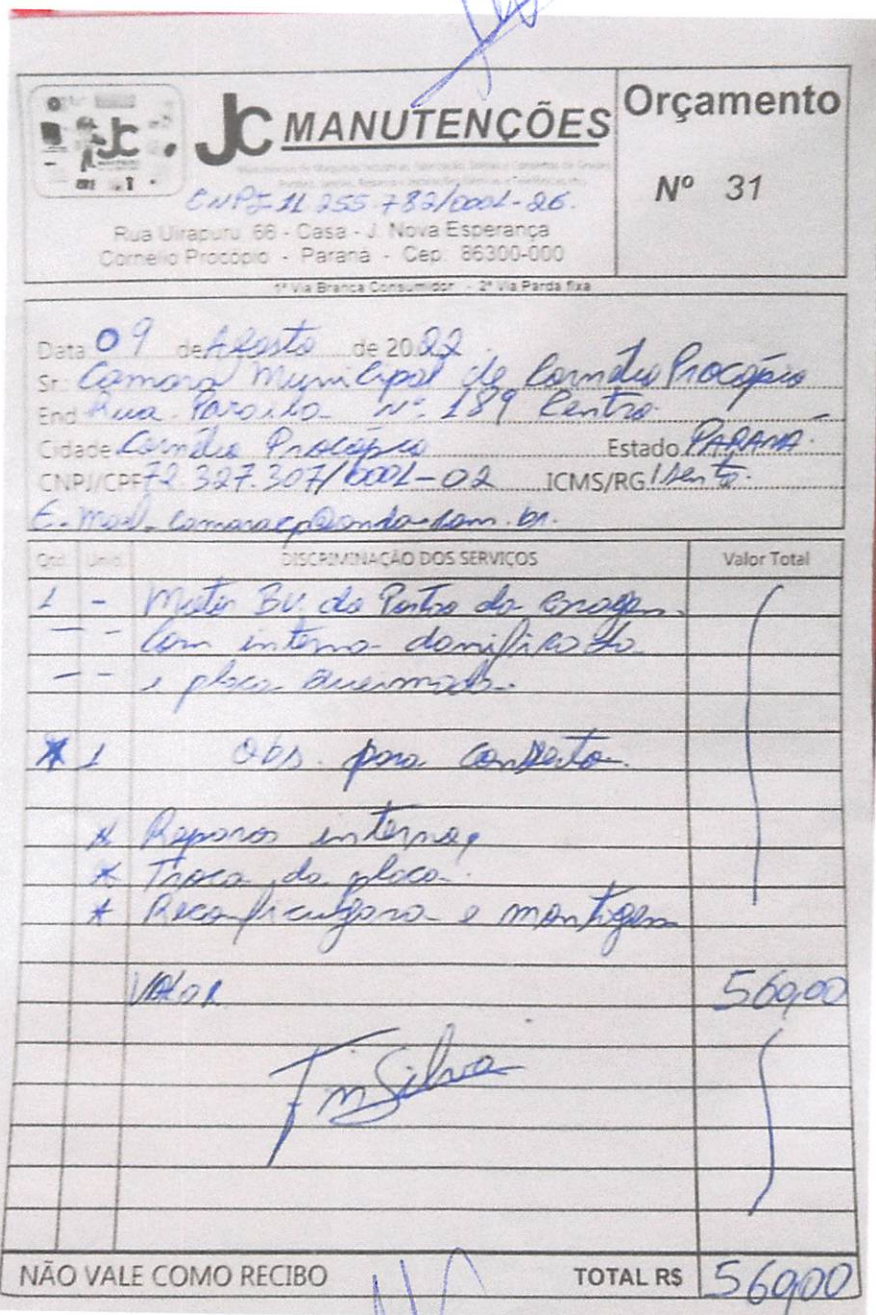 JC MANUTENÇÕES
Orçamento
Nº 31
CNPJ 11 255.782/0001-26.
Rua Uirapuru, 66 - Casa - J. Nova Esperança
Cornélio Procópio - Paraná - Cep. 86300-000
1ª Via Branca Consumidor - 2ª Via Parda fixa
Data 09 de Agosto de 2022
Sr. Camara Municipal de Cornélio Procópio
End Rua Paraiba Nº 189 Centro
Cidade Cornélio Procópio Estado PARANÁ
CNPJ/CPF 72.327.307/0001-02 ICMS/RG Isento.
E-mail
Qtd. Unid. DISCRIMINAÇÃO DOS SERVIÇOS Valor Total
1 - Motor BV. do Portão da
- - Com interno danificado
- - e placa queimada.
* 1 Obs. para conserto
* Reparos interno,
* Troca da placa.
* e montagem
VALOR 560,00
NÃO VALE COMO RECIBO TOTAL R$ 560,00